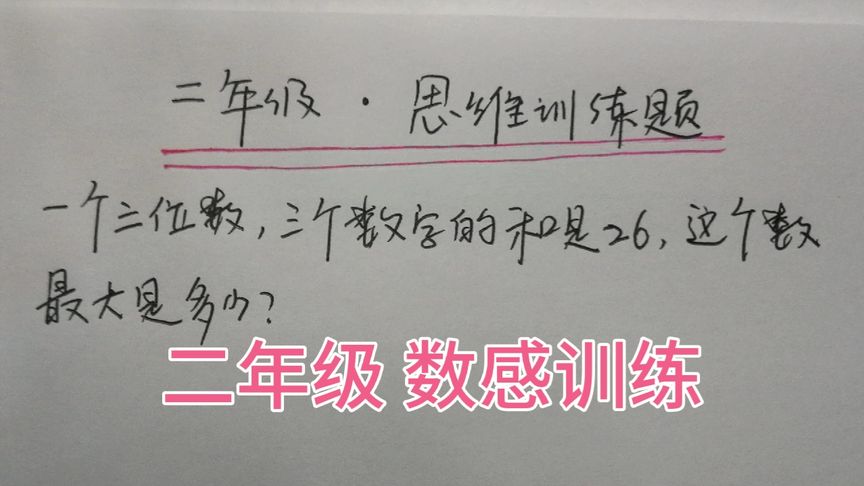 二年级·思维训练题
一个三位数,三个数字的和是26,这个数
最大是多少?
二年级 数感训练